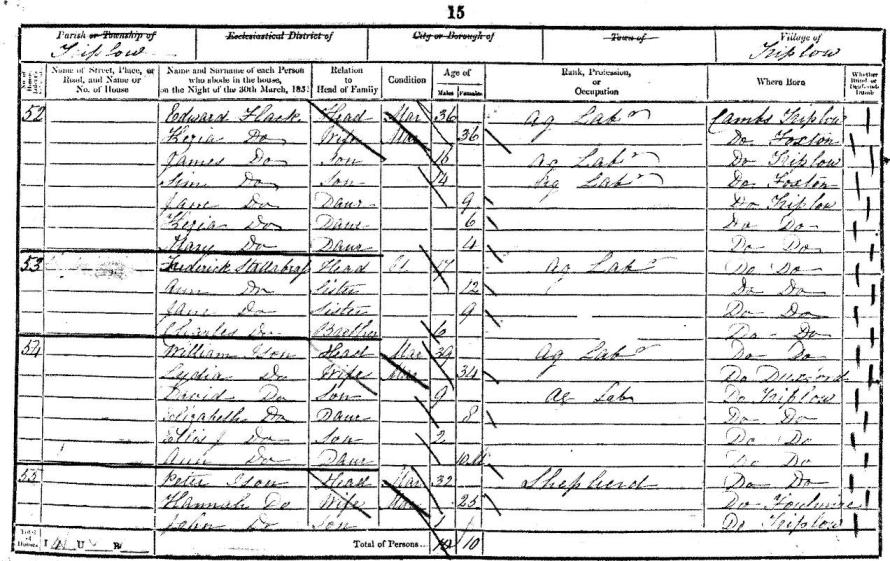 15
Parish or Township of Ecclesiastical District of City or Borough of Town of Village of
Triplow Triplow
No. of House Name of Street, Place, or Road, and Name or No. of House Name and Surname of each Person who abode in the house, on the Night of the 30th March, 1851 Relation to Head of Family Condition Age of Males Females Rank, Profession, or Occupation Where Born Whether Blind or Deaf-and-Dumb
52 Edward Flack Head Mar 36 Ag Labr Cambs Triplow
Kezia Do Wife Mar 36 Do Foxton
James Do Son 16 Ag Labr Do Triplow
Sim Do Son 14 Ag Labr Do Foxton
Jane Do Daur 9 Do Triplow
Kezia Do Daur 6 Do Do
Mary Do Daur 4 Do Do
53 Frederick Stallabrass Head 17 Ag Labr Do Do
Ann Do Sister 12 Do Do
Jane Do Sister 9 Do Do
Charles Do Brother 6 Do Do
54 William Ison Head Mar 39 Ag Labr Do Do
Lydia Do Wife Mar 34 Do Duxford
David Do Son 9 Ag Lab Do Triplow
Elizabeth Do Daur 8 Do Do
Ellis J Do Son 2 Do Do
Ann Do Daur Do Do
55 Peter Ison Head Mar 32 Shepherd Do Do
Hannah Do Wife Mar 25 Do Foulmire
John Do Son 1 Do Triplow
Total of Houses I 4 U B Total of Persons 10 10